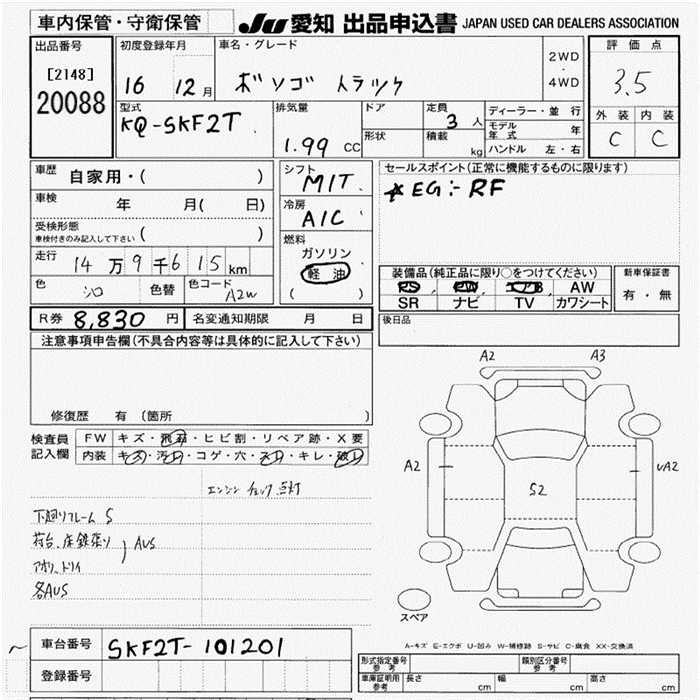 車内保管・守衛保管 JU 愛知 出品申込書 JAPAN USED CAR DEALERS ASSOCIATION
出品番号
[2148]
20088
初度登録年月
16 12 月
車名・グレード
ボンゴ トラック
2WD
・
4WD
評価点
3.5
外装 内装
C C
型式
KQ-SKF2T
排気量
1.99 CC
ドア
形状
定員
3 人
積載
kg
ディーラー・並行
モデル年式 年
ハンドル 左・右
車歴 自家用・( )
車検 年 月( 日)
受検形態
車検付きのみ記入して下さい ( )
走行 14 万 9 千 6 15 km
色 シロ 色替 色コード A2W
シフト
M/T
冷房
A/C
燃料
ガソリン
軽油
( )
セールスポイント(正常に機能するものに限ります)
☆EG:-RF
装備品(純正品に限り○をつけてください)
PS PW エアB AW
SR ナビ TV カワシート
新車保証書
有・無
R券 8,830 円 名変通知期限 月 日
後日品
注意事項申告欄(不具合内容等は具体的に記入して下さい)
修復歴 有 (箇所 )
検査員
記入欄
FW キズ・飛石・ヒビ割・リペア跡・X要
内装 キズ・汚れ・コゲ・穴・スレ・キレ・破れ
エンジン チェック 点灯
下廻りフレーム S
荷台、床鉄張り
アオリ、トリイ
AUS
各AUS
A2 A3
A2 S2 UA2
スペア
A-キズ E-エクボ U-凹み W-補修跡 S-サビ C-腐食 XX-交換済
車台番号 SKF2T-101201
登録番号
形式指定番号
参考
類別区分番号
参考
車庫証明用
参考
長さ cm 幅 cm 高さ cm